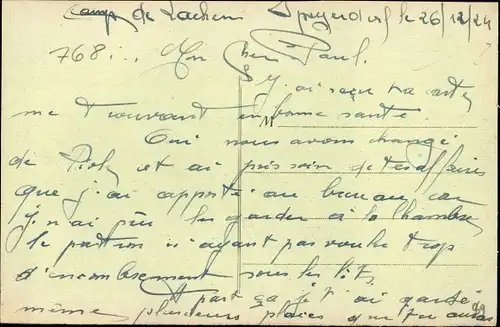 Camp de Lachen Speyerdorf le 26/12/24
768 Mon Cher Paul.
J'ai reçu ta carte
me trouvant en bonne santé.
Oui nous avons changé
de et ai pris soin de tes affaires
que j'ai apporté au bureau car
j'n'ai pu les garder à la chambre
le patron n'ayant pas voulu trop
d'encombrement sous les lits,
part ça je t'ai gardé
même plusieurs places que tu